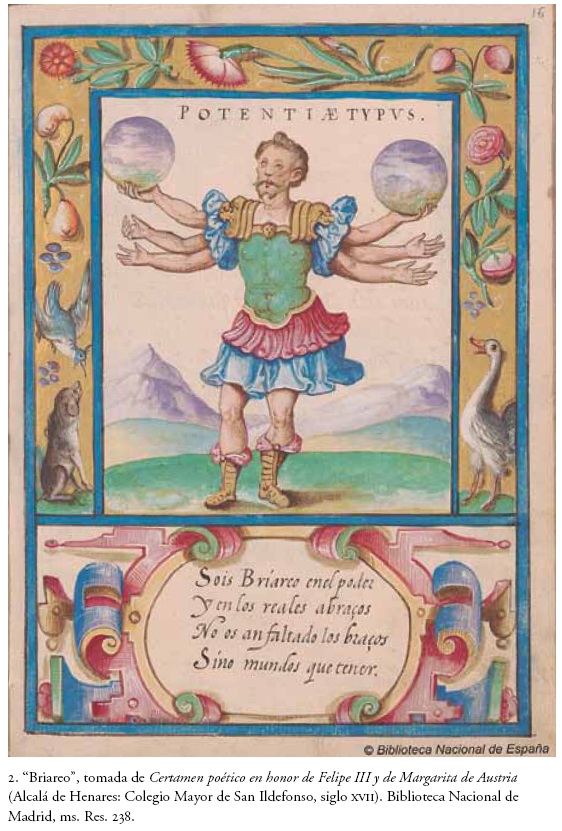 16
POTENTIÆ TYPVS.
Sois Briareo enel poder
Y en los reales abraços
No os an faltado los braços
Sino mundos que tener.
© Biblioteca Nacional de España
2. “Briareo”, tomada de Certamen poético en honor de Felipe III y de Margarita de Austria
(Alcalá de Henares: Colegio Mayor de San Ildefonso, siglo XVII). Biblioteca Nacional de
Madrid, ms. Res. 238.